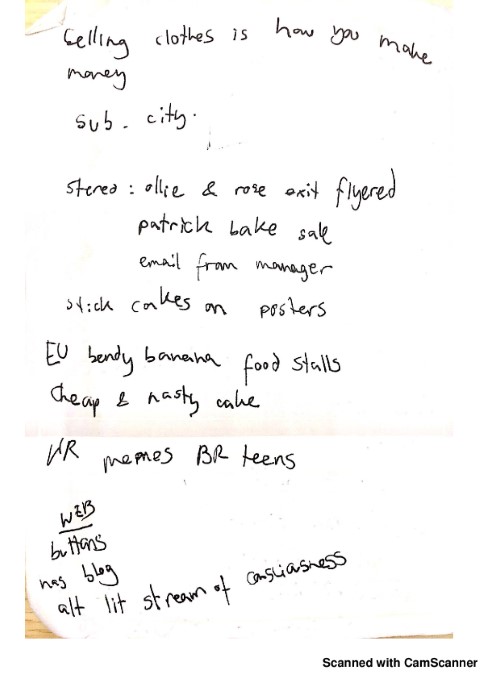 Selling clothes is how you make
money
sub. city.
stereo: ollie & rose exit flyered
patrick bake sale
email from manager
stick cakes on posters
EU bendy banana food stalls
cheap & nasty cake
memes BR teens
WEB
buttons
blog
alt lit stream of consciasness
Scanned with CamScanner